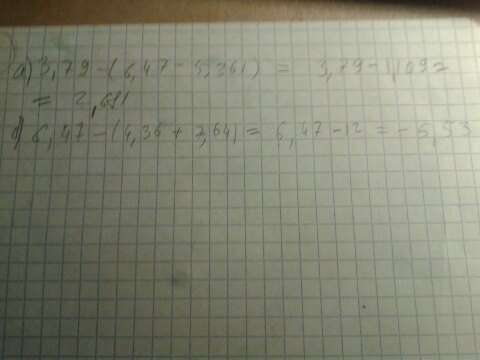 а) 3,79-(6,47-5,361) = 3,79-1,109=
= 2,681
б) 6,47-(4,36+7,64)= 6,47-12=-5,53